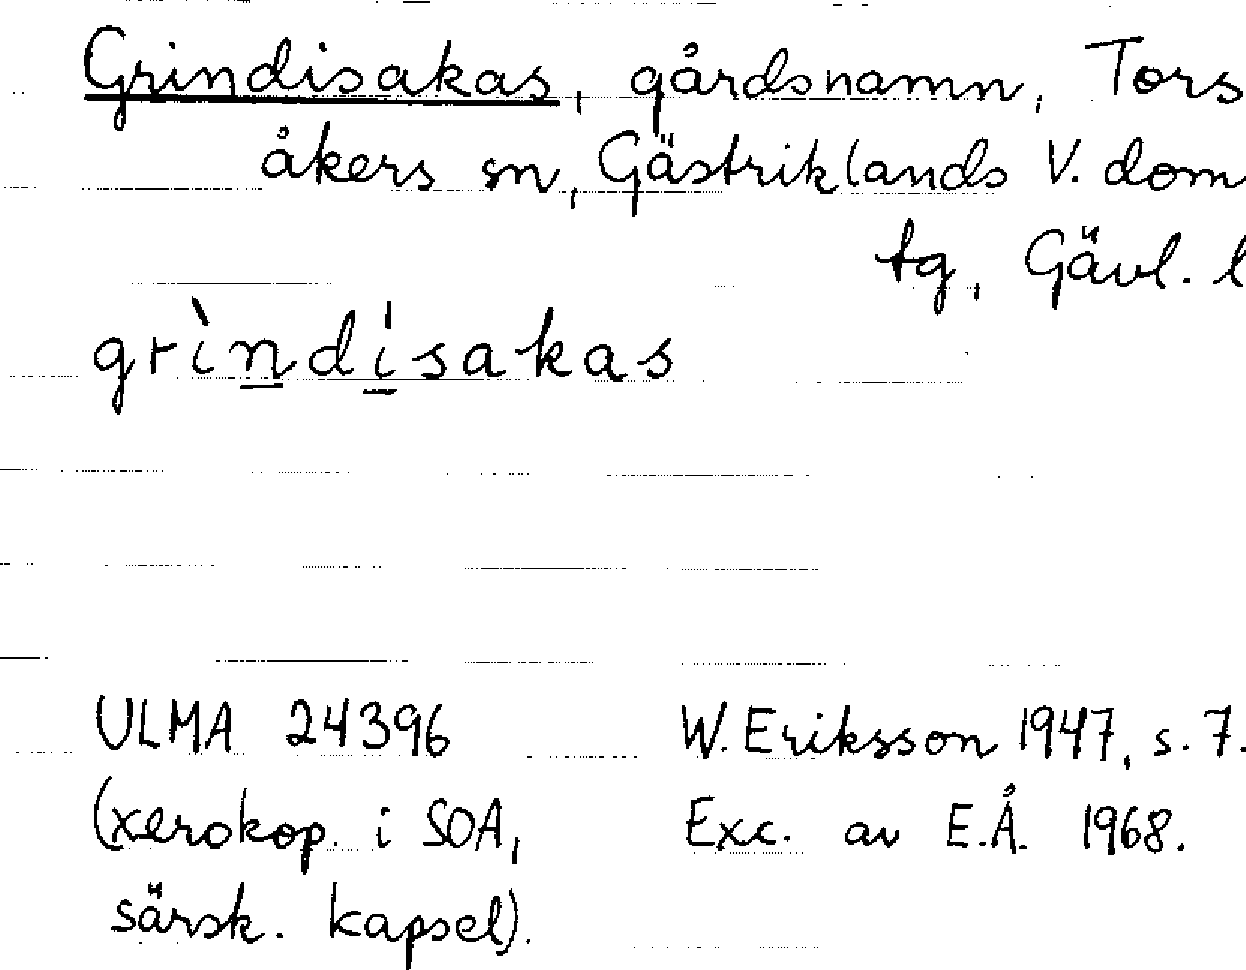 Grindisakas, gårdsnamn, Tors
åkers sn, Gästriklands V. dom
tg, Gävl. l
grìndísakas
ULMA 24396 W. Eriksson 1947, s. 7.
(xerokop. i SOA, Exc. av E.Å. 1968.
särsk. kapsel).